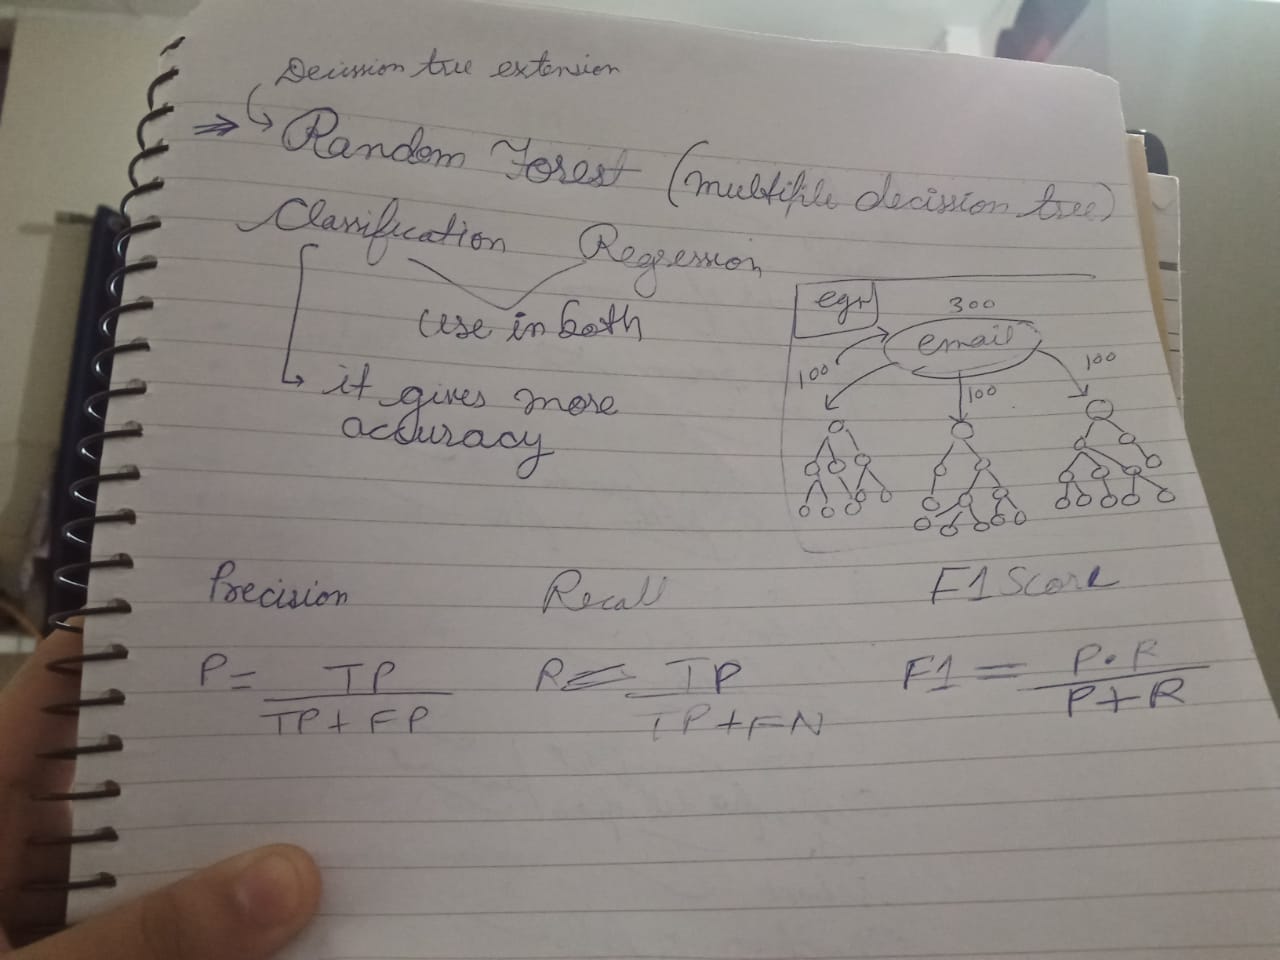 Decission tree extension
⇒ Random Forest (multiple decission tree)
Classification Regression
use in both
it gives more
accuracy
egr
300
email
100
100
100
Precision Recall F1 Score
P = TP / TP + FP
R = TP / TP + FN
F1 = P . R / P + R